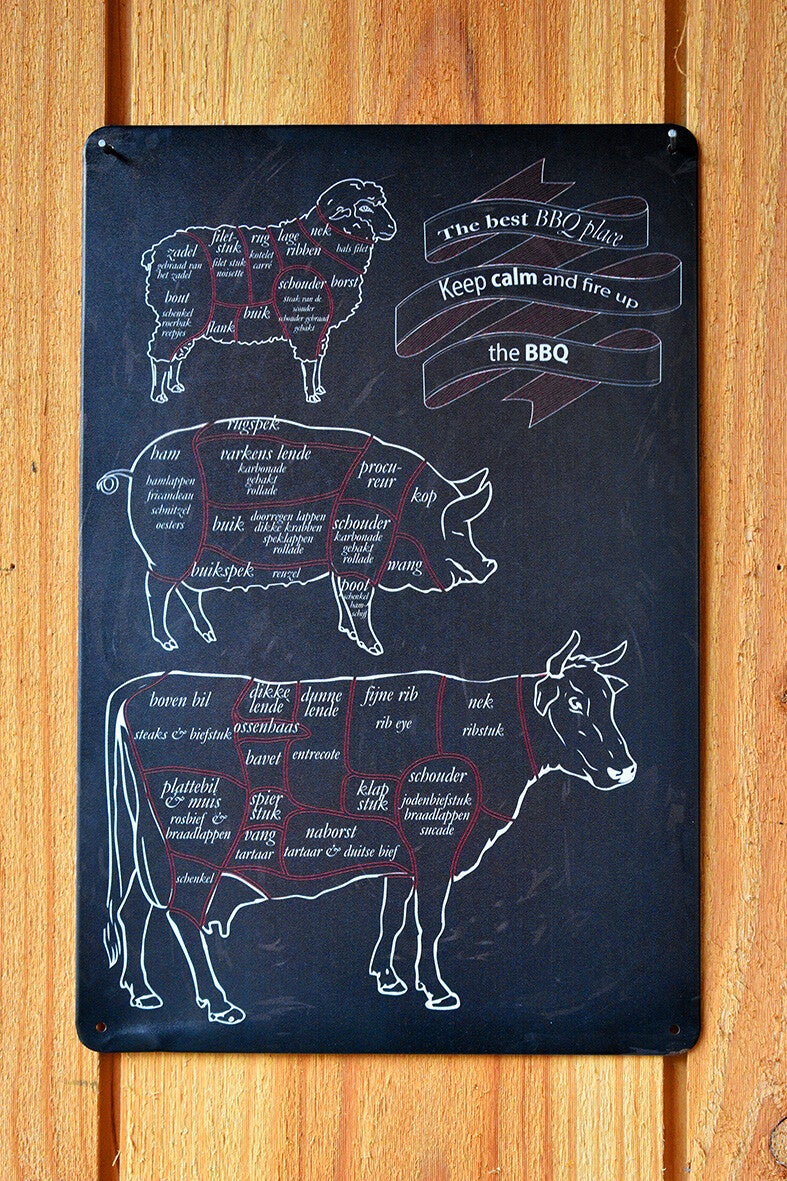 The best BBQ place
Keep calm and fire up
the BBQ
zadel
gebraad van
het zadel
filet-
stuk
filet stuk
noisette
rug
kotelet
carré
lage
ribben
nek
hals filet
bout
schenkel
roerbak
reepjes
flank
buik
schouder
steak van de
schouder gebraad
gehakt
borst
rugspek
ham
hamlappen
fricandeau
schnitzel
oesters
varkens lende
karbonade
gehakt
rollade
procu-
reur
kop
buik
doorregen lappen
dikke krabben
speklappen
rollade
schouder
karbonade
gehakt
rollade
wang
buikspek
reuzel
poot
schenkel
ham-
schijf
boven bil
steaks & biefstuk
dikke
lende
dunne
lende
ossenhaas
fijne rib
rib eye
nek
ribstuk
bavet
entrecote
plattebil
& muis
rosbief &
braadlappen
spier
stuk
klap
stuk
schouder
jodenbiefstuk
braadlappen
sucade
vang
tartaar
naborst
tartaar & duitse bief
schenkel